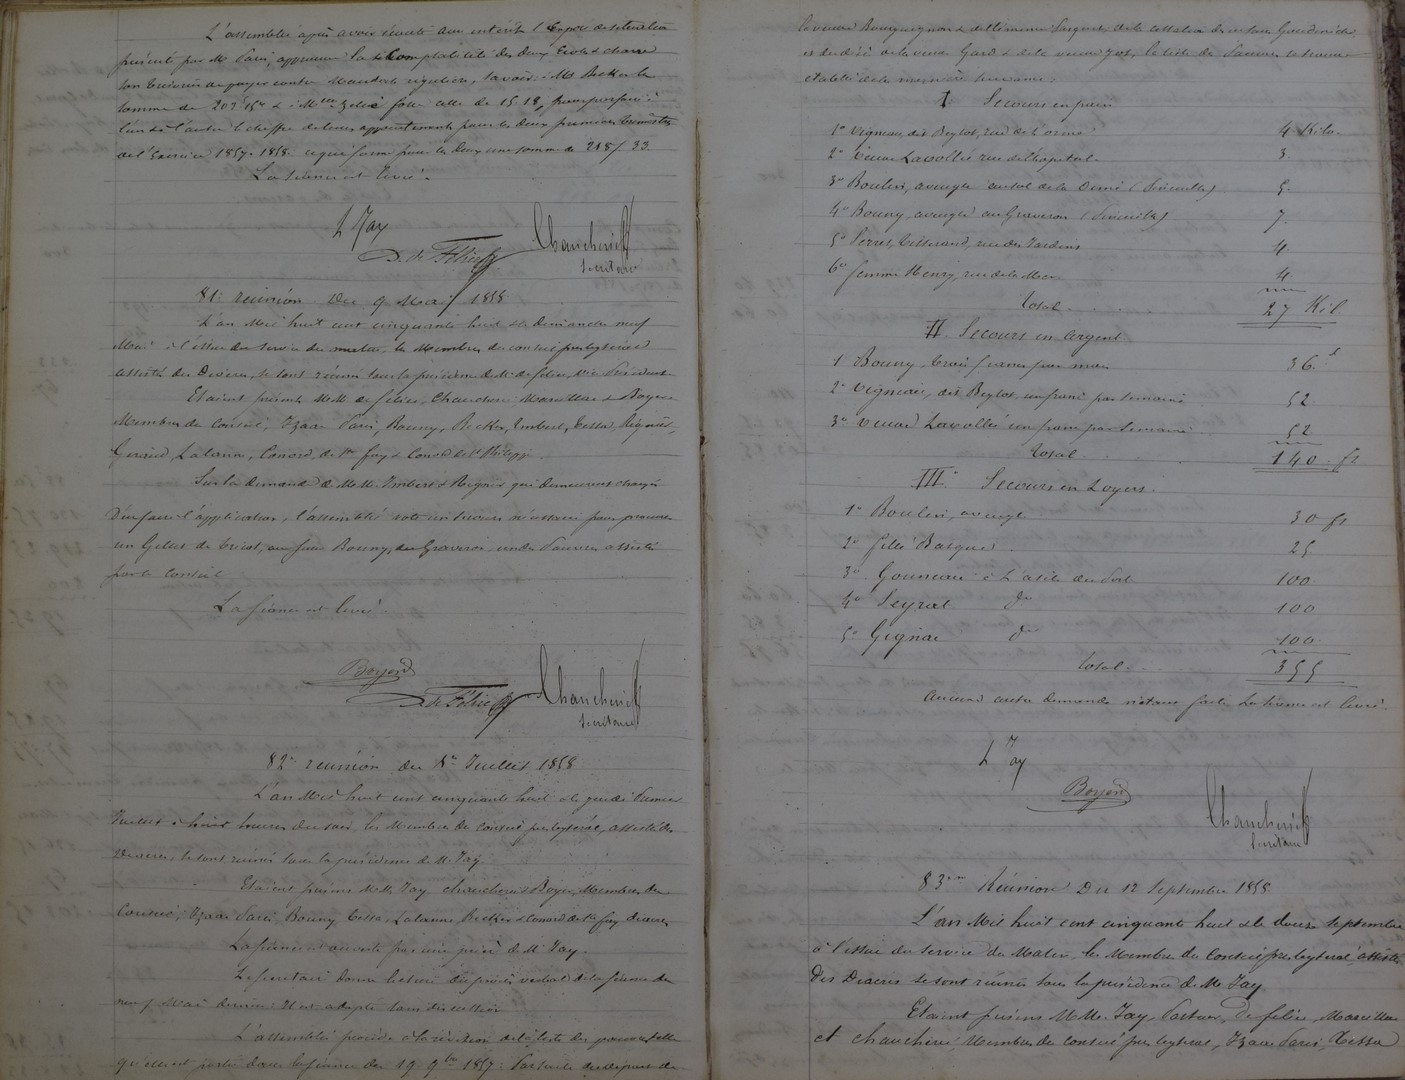 L'assemblée après avoir écouté avec intérêt l'Exposé de situation
présenté par M. Paris, approuve la Comptabilité des deux Ecoles et charge
son trésorier de payer contre Mandats réguliers, savoir: à M. Becker la
somme de 203.15 et à Melle Zélie celle de 15.18, pour parfaire à
l'un et l'autre le chiffre de leurs appointements pour les deux premiers trimestres
de l'Exercice 1857-1858. ce qui forme pour les deux une somme de 218f 33.
La séance est levée.
L Jay
D. de Félice
Chaucherie
secrétaire
81e reunion du 9 Mai 1858
L'an Mil huit cent cinquante huit et le dimanche neuf
Mai à l'issue du service du matin, les Membres du conseil presbytéral
assistés des Diacres, se sont réunis sous la présidence de M. de Félice, Vice Président.
Etaient présents MM. de Félice, Chaucherie Marvillac et Boyer
Membres du Conseil, Izaac Paris, Bouny, Becker, Imbert, Tessa, Régnier,
Geraud, Lalanne, Conord de Ste Foy et Conord de St Philippe.
Sur la demande de M.M. Imbert et Régnier qui demeurent chargés
d'en faire l'application, l'assemblée vote un secours nécessaire pour procurer
un Gilet de tricot, au sieur Bouny, du Graveron, un des Pauvres assistés
par le Conseil
La séance est levée.
Boyer
D. de Félice
Chaucherie
secrétaire
82e reunion du 1er Juillet 1858
L'an Mil huit cent cinquante huit et le jeudi Premier
Juillet à huit heures du soir, les Membres du Conseil presbytéral, assistés des
Diacres, se sont réunis sous la présidence de M. Jay
Etaient présens M.M. Jay, Chaucherie et Boyer, Membres du
Conseil, Izaac Paris, Bouny, Tessa, Lalanne, Becker et Conord de Ste Foy diacres
La séance est ouverte par une prière de M. Jay.
Le secrétaire donne lecture du procès verbal de la séance du
neuf Mai dernier. Il est adopté sans discussion
L'assemblée procède à la révision de la liste des pauvres, telle
qu'elle est portée dans la séance du 19 9bre 1857. Par suite du départ de
la veuve Bourguignon et de Clémence Sargent, de la cessation des secours
et du décès de la veuve Gard et de la veuve, la liste des Pauvres se trouve
établie de la manière suivante:
I. Secours en pain
1° Vigneau, dit Beylot, rue de l'orme 4 Kilo.
2° Veuve Lavollée rue de l'hopital. 3.
3° Boulin, aveugle au sol de la Dime (Pineuilh) 5.
4° Bouny, aveugle au Graveron (Pineuilh) 7.
5° Serres, tisserand, rue des Jardins 4.
6° femme Henry, rue de la Mer 4.
Total 27 Kil.
II. Secours en Argent
1 Bouny, trois francs par mois 36.
2° Vigneau, dit Beylot, un franc par semaine 52
3° Veuve Lavollée un franc par semaine 52
Total 140 fs
III. Secours en Loyers.
1° Boulin, aveugle 30 fs
2° fille Basque 25
3° Gouneau à l'asile du Port 100
4° Seyrat do 100
5° Gignac do 100
Total 355
Aucune autre demande n'étant faite la séance est levée.
L Jay
Boyer
Chaucherie
secrétaire
83me Réunion du 12 Septembre 1858.
L'an Mil huit cent cinquante huit et le douze Septembre
à l'issue du service du Matin, les Membres du Conseil presbytéral, assistés
des Diacres se sont réunis sous la présidence de M. Jay.
Etaient présens M.M. Jay, Pasteur, de Félice, Marvillac
et Chaucherie, Membres du Conseil presbytéral, Izaac Paris, Tessa